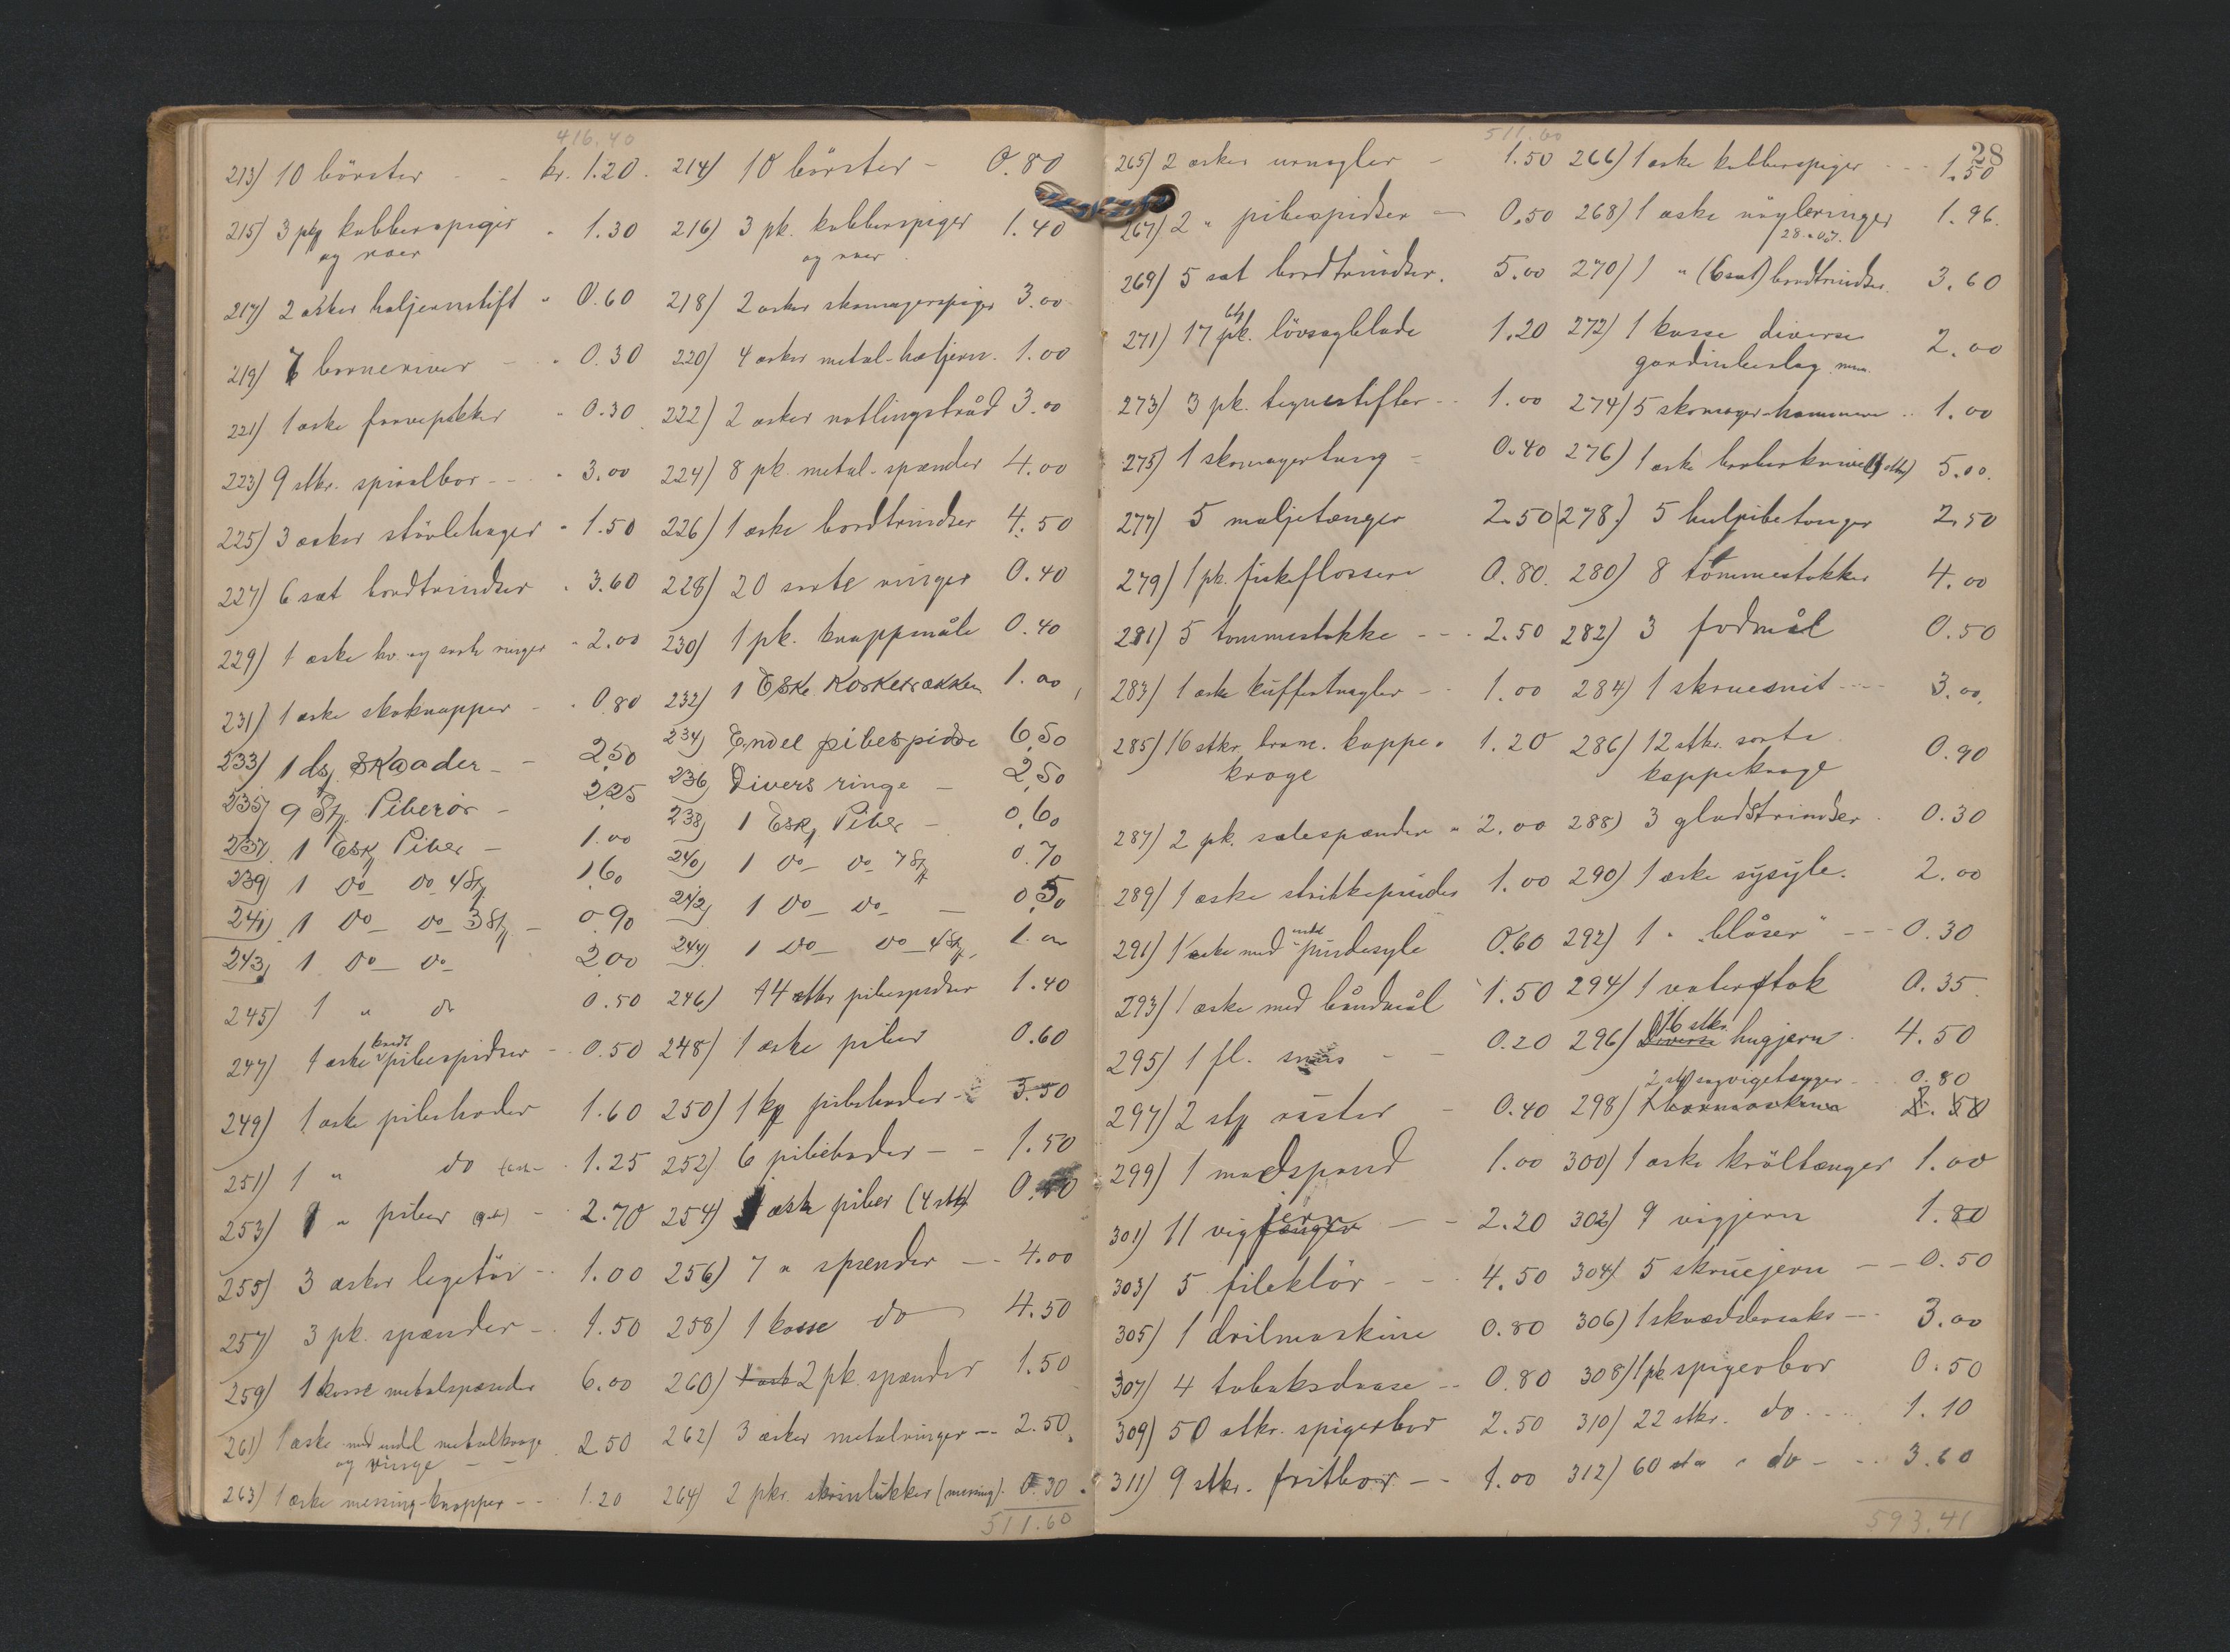 416.40
213) 10 börster - - kr. 1.20. 214) 10 börster - 0.80
215) 3 pk kobberspiger " 1.30 216) 3 pk. kobberspiger 1.40
og roer og roer
217) 2 æsker hæljernstift " 0.60 218) 2 æsker skomagerspiger 3.00
219) 7 barneriver - " 0.30 220) 4 æsker metal-hæljern. 1.00
221) 1 æske farvepakker " 0.30 222) 2 æsker nætlingstråd 3.00
223) 9 stkr. spiralbor - - " 3.00 224) 8 pk. metal-spænder 4.00
225) 3 æsker stövlehager " 1.50 226) 1 æske bordtrindser 4.50
227) 6 sæt bordtrindser " 3.60 228) 20 sorte ringer 0.40
229) 1 æske hv. og sorte ringer " 2.00 230) 1 pk. knappenåle 0.40
231) 1 æske skoknapper - " 0.80 232) 1 Eske Korketrækker 1.00
233) 1 ds. Skaader - - 2,50 234) Endel pibespidse 6,50
235) 9 St. Piberör - 2,25 236) Divers ringe - 2,50
237) 1 Esk Piber - 1.00 238) 1 Esk Piber - 0,60
239) 1 do - do 4 St. 1,60 240) 1 do - do 7 St 0.70
241) 1 do - do 3 St - 0.90 242) 1 do - do - 0,50
243) 1 do - do 2,00 244) 1 do - do 4 St. 1.00
245) 1 " do 0.50 246) 14 stkr pibespidser 1.40
bredt
247) 1 æske pibespidser - 0.50 248) 1 æske piber 0.60
249) 1 æske pibehoder 1.60 250) 1 pibehoder - 3.50
251) 1 " do - 1.25 252) 6 pibehoder - - 1.50
253) 1 " piber - 2.70 254) 1 æske piber (4 stk)
255) 3 æsker legetöi - 1.00 256) 7 " spænder - - 4.00
257) 3 pk. spænder - 1.50 258) 1 kasse do 4.50
259) 1 kasse metalspænder 6.00 260) 1 æsk 2 pk. spænder 1.50
261) 1 æske med endel metalkroge 2.50 262) 3 æsker metalringer -- 2.50
og ringe - -
263) 1 æske messing-knapper - - 1.20 264) 2 pkr. skrinlukker (messing). 0.30
511.60
511.60
28
265) 2 æsker urnagler - 1.50 266) 1 æske kobberspiger - - 1.50
267) 2 " pibespidser - 0.50 268) 1 æske nögleringer 1.96.
269) 5 sæt bordtrindser. 5.00 270) 1 " (6 sæt) bordtrindser. 3.60
271) 17 pk. lövsagblade 1.20 272) 1 kasse diverse 2.00
gardinbeslag m.m.
273) 3 pk. tegnestifter - - 1.00 274) 5 skomager-hammere .. 1.00
275) 1 skomagertang - 0.40 276) 1 æske barberknive 5.00.
277) 5 maljetænger 2.50 278.) 5 hulpibetænger 2.50
279) 1 pk. fiskeflossere 0.80. 280) 8 tommestokker 4.00
281) 5 tommestokke - - . 2.50 282) 3 fodmål 0.50
283) 1 æske kuffertnagler - - 1.00 284) 1 skruesnit - - - 3.00.
285) 16 stkr. brune. kappe- 1.20 286) 12 stkr. sorte 0.90
kroge kappekroge
287) 2 pk. salespænder " 2.00 288) 3 gladstrindser . 0.30
289) 1 æske strikkepinder 1.00 290) 1 æske sysyle. 2.00
endel
291) 1 æske med pindesyle 0.60 292) 1 " "blåser" - - - 0.30
293) 1 æske med båndmål 1.50 294) 1 vaterstok 0.35
16 stkr.
295) 1 fl. - - 0.20 296) Diverse hugjern. 4.50
2 stk sagvigetænger - 0.80
297) 2 stk rister - 0.40 298)
299) 1 madspand 1.00 300) 1 æske kröltænger 1.00
jern
301) 11 vigtænger - - 2.20 302) 9 vigjern 1.80
303) 5 fileklör - - . 4.50 304) 5 skruejern - - 0.50
305) 1 drilmaskine 0.80 306) 1 skræddersaks - - 3.00
307) 4 tobaksdaase - - 0.80 308) 1 pk. spigerbor 0.50
309) 50 stkr. spigerbor 2.50 310) 22 stkr. do - - 1.10
311) 9 stkr. fritbor - - 1.00 312) 60 st " do - - 3.60
593.41